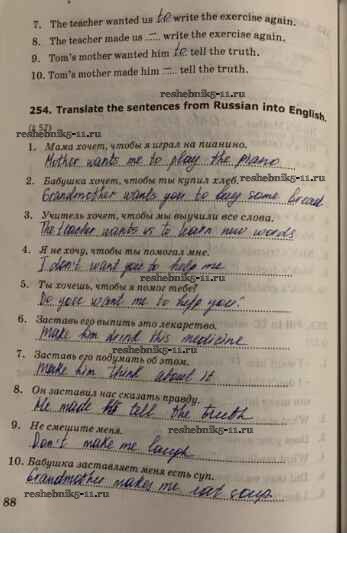 7. The teacher wanted us to write the exercise again.
8. The teacher made us — write the exercise again.
9. Tom's mother wanted him to tell the truth.
10. Tom's mother made him — tell the truth.
reshebniks-11.ru
254. Translate the sentences from Russian into English.
(§ 52)
reshebniks-11.ru
1. Мама хочет, чтобы я играл на пианино.
Mother wants me to play the piano
2. Бабушка хочет, чтобы ты купил хлеб. reshebniks-11.ru
Grandmother wants you to buy some bread
3. Учитель хочет, чтобы мы выучили все слова.
The teacher wants us to learn new words
4. Я не хочу, чтобы ты помогал мне.
I don't want you to help me
reshebniks-11.ru
5. Ты хочешь, чтобы я помог тебе?
Do you want me to help you?
6. Заставь его выпить это лекарство.
Make him drink this medicine
reshebniks-11.ru
7. Заставь его подумать об этом.
Make him think about it
8. Он заставил нас сказать правду.
He made us tell the truth
9. Не смешите меня. reshebniks-11.ru
Don't make me laugh
10. Бабушка заставляет меня есть суп.
Grandmother makes me eat soup
reshebniks-11.ru
88